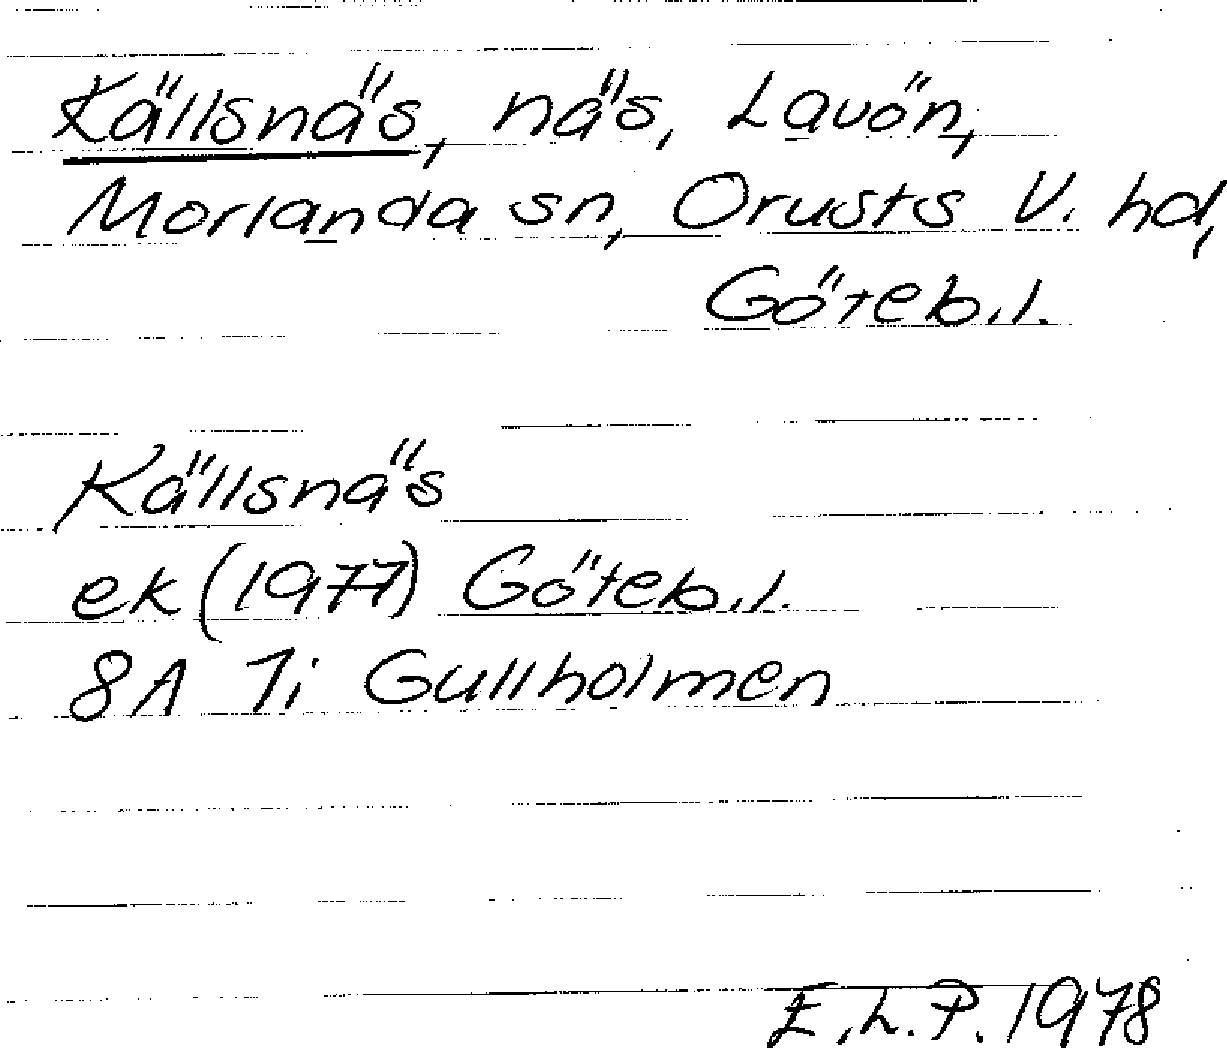 Källsnäs, näs, Lavön,
Morlanda sn, Orusts V. hd,
Göteb.l.
Källsnäs
ek (1977) Göteb.l.
8A 7i Gullholmen
E.L.P. 1978